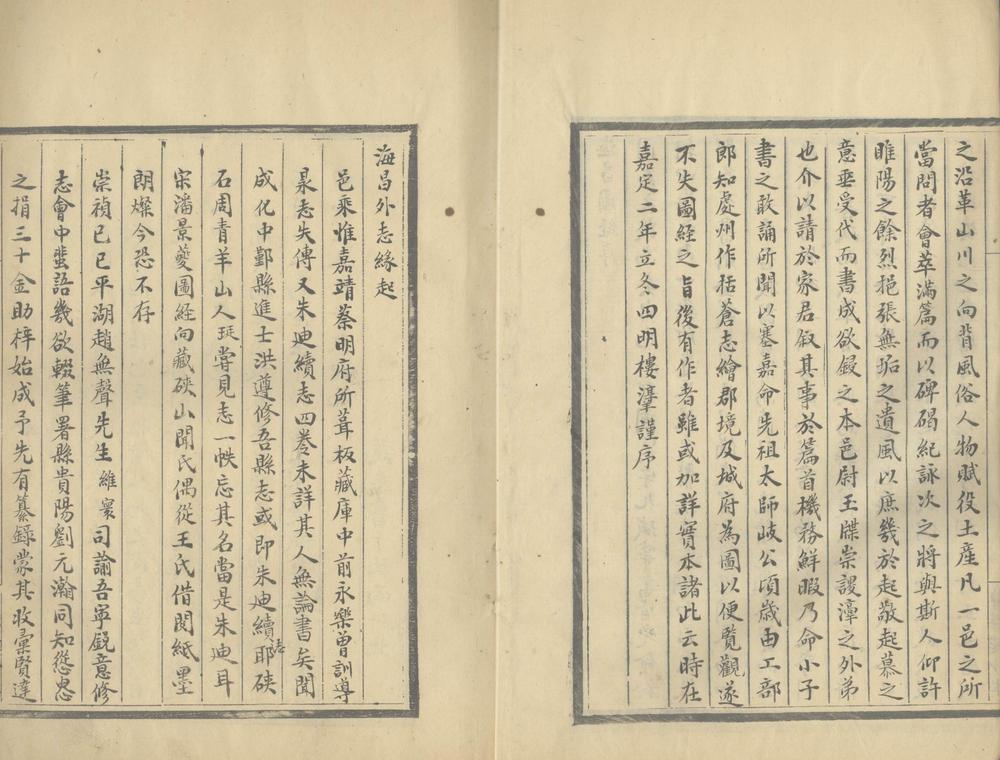 之沿革山川之向背風俗人物賦役土產凡一邑之所
當問者會萃滿篇而以碑碣紀詠次之將與斯人仰許
睢陽之餘烈挹張無垢之遺風以庶幾於起敬起慕之
意垂受代而書成欲鋟之本邑尉玉牒崇謖漳之外弟
也介以請於家君叙其事於篇首機務鮮暇乃命小子
書之敢誦所聞以塞嘉命先祖太師岐公頃歲由工部
郎知處州作括蒼志繪郡境及城府為圖以便覧觀遂
不失圖經之旨後有作者雖或加詳實本諸此云時在
嘉定二年立冬四明樓漳謹序
海昌外志緣起
邑乘惟嘉靖蔡明府所葺板藏庫中前永樂曾訓導
泉志失傳又朱迪續志四卷未詳其人無論書矣聞
成化中鄞縣進士洪遵修吾縣志或即朱迪續志耶硤
石周青羊山人珽嘗見志一帙忘其名當是朱迪耳
宋潘景夔圖經向藏硤山聞氏偶從王氏借閱紙墨
朗燦今恐不存
崇禎己巳平湖趙無聲先生維寰司諭吾寧鋭意修
志會中蜚語幾欲輟筆署縣貴陽劉元瀚同知慫恿
之捐三十金助梓始成予先有纂錄蒙其收彙賢達